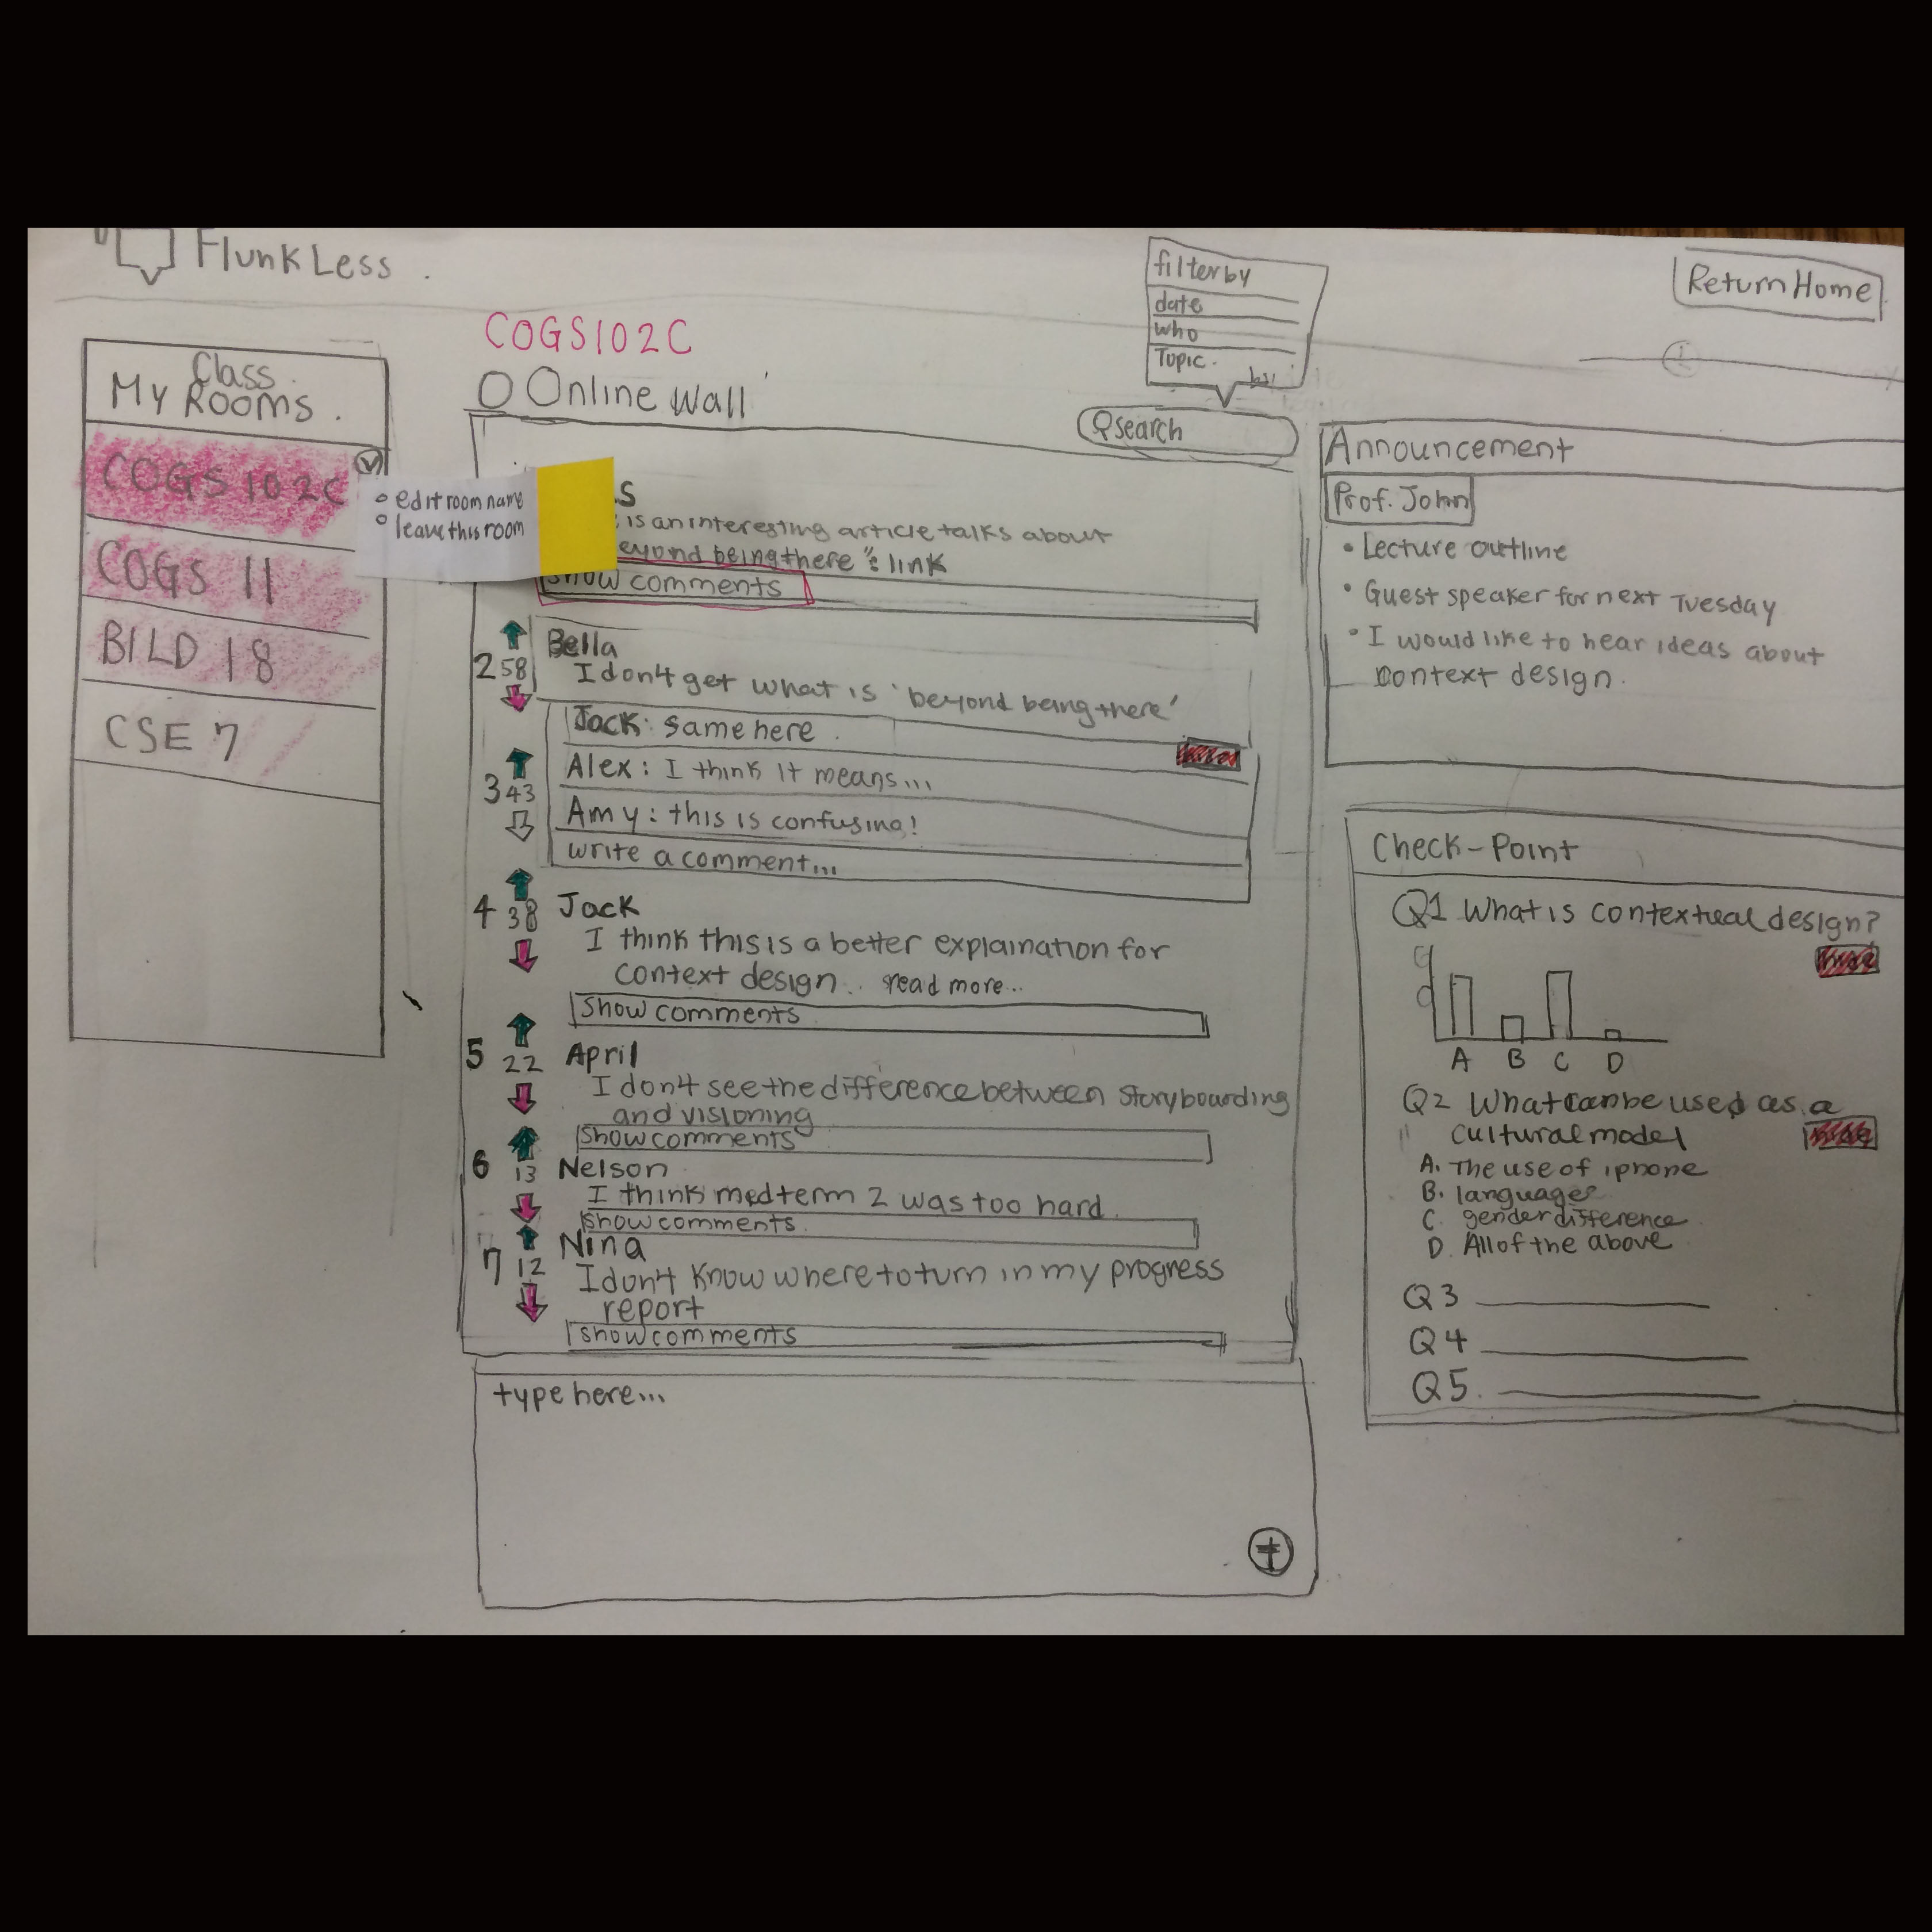 FlunkLess
Return Home
filter by
date
who
Topic.
Class
My Rooms.
COGS 102C
COGS 11
BILD 18
CSE 7
edit room name
leave this room
COGS102C
Online Wall
search
is an interesting article talks about
eyond being there": link
show comments
2 58 Bella
I don't get what is 'beyond being there'
Jack: same here
Alex: I think it means...
3 43
Amy: this is confusing!
write a comment...
4 38 Jack
I think this is a better explaination for
context design.. read more...
Show comments
5 22 April
I don't see the difference between storyboarding
and visioning
Show comments
6 13 Nelson
I think medterm 2 was too hard
show comments
7 12 Nina
I don't know where to turn in my progress
report
show comments
type here...
Announcement
Prof. John
• Lecture outline
• Guest speaker for next Tuesday
• I would like to hear ideas about
context design.
Check-Point
Q1 What is contextual design?
A B C D
Q2 What can be used as a
cultural model
A. The use of iphone
B. languages
C. gender difference
D. All of the above
Q3
Q4
Q5.